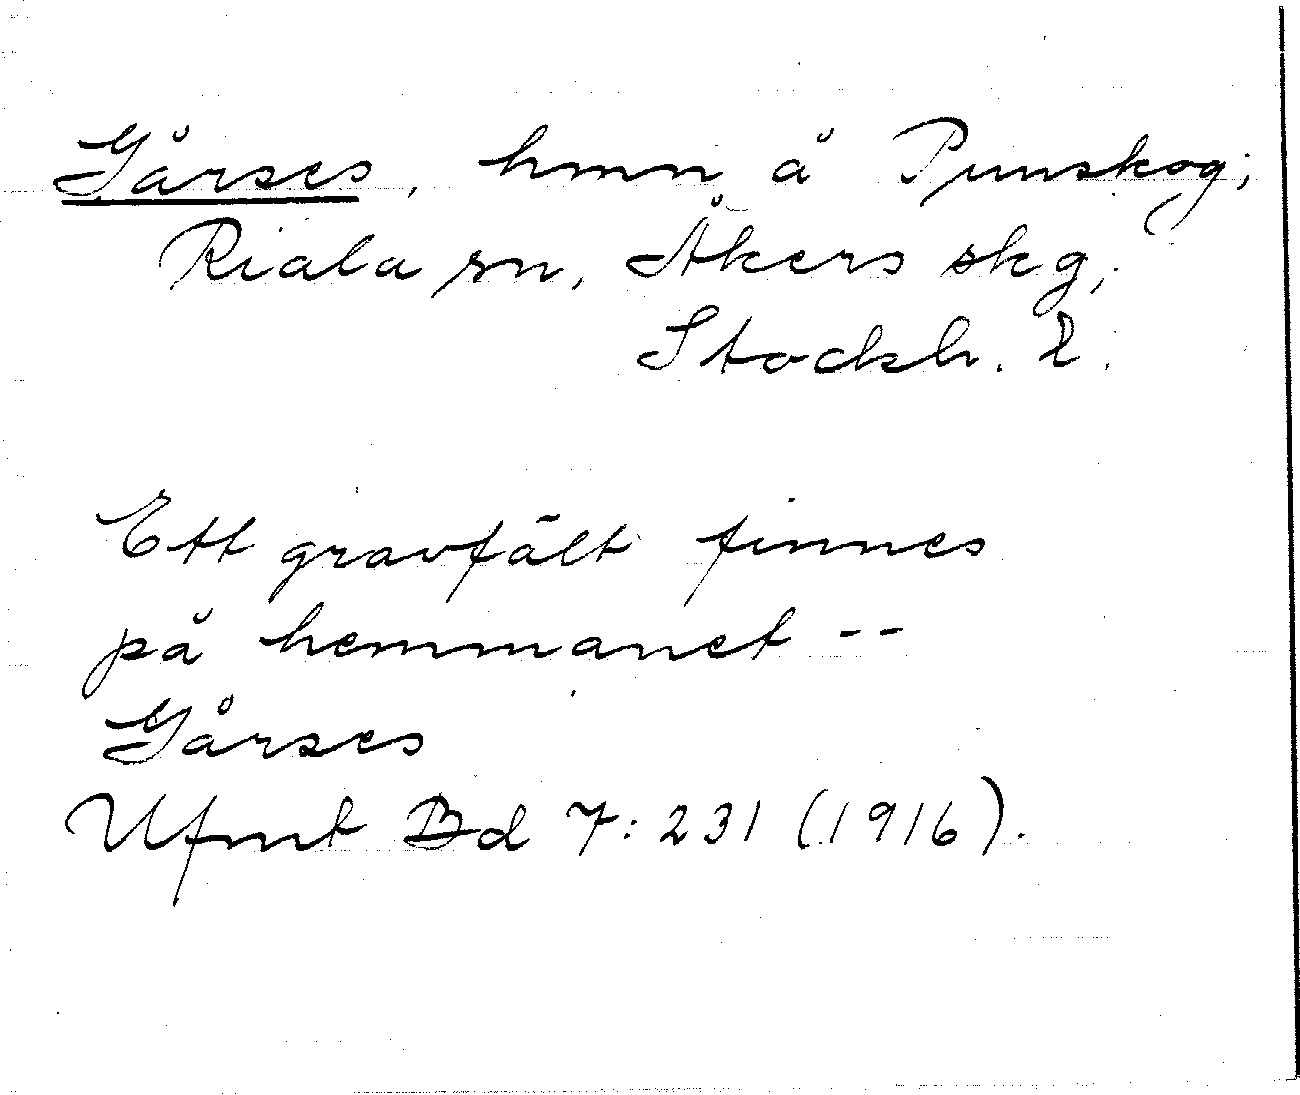 Gårses, hmn å Punskog;
Riala sn, Åkers skg,
Stockh. l.
Ett gravfält finnes
på hemmanet --
Gårses
Ufmt Bd 7: 231 (1916).